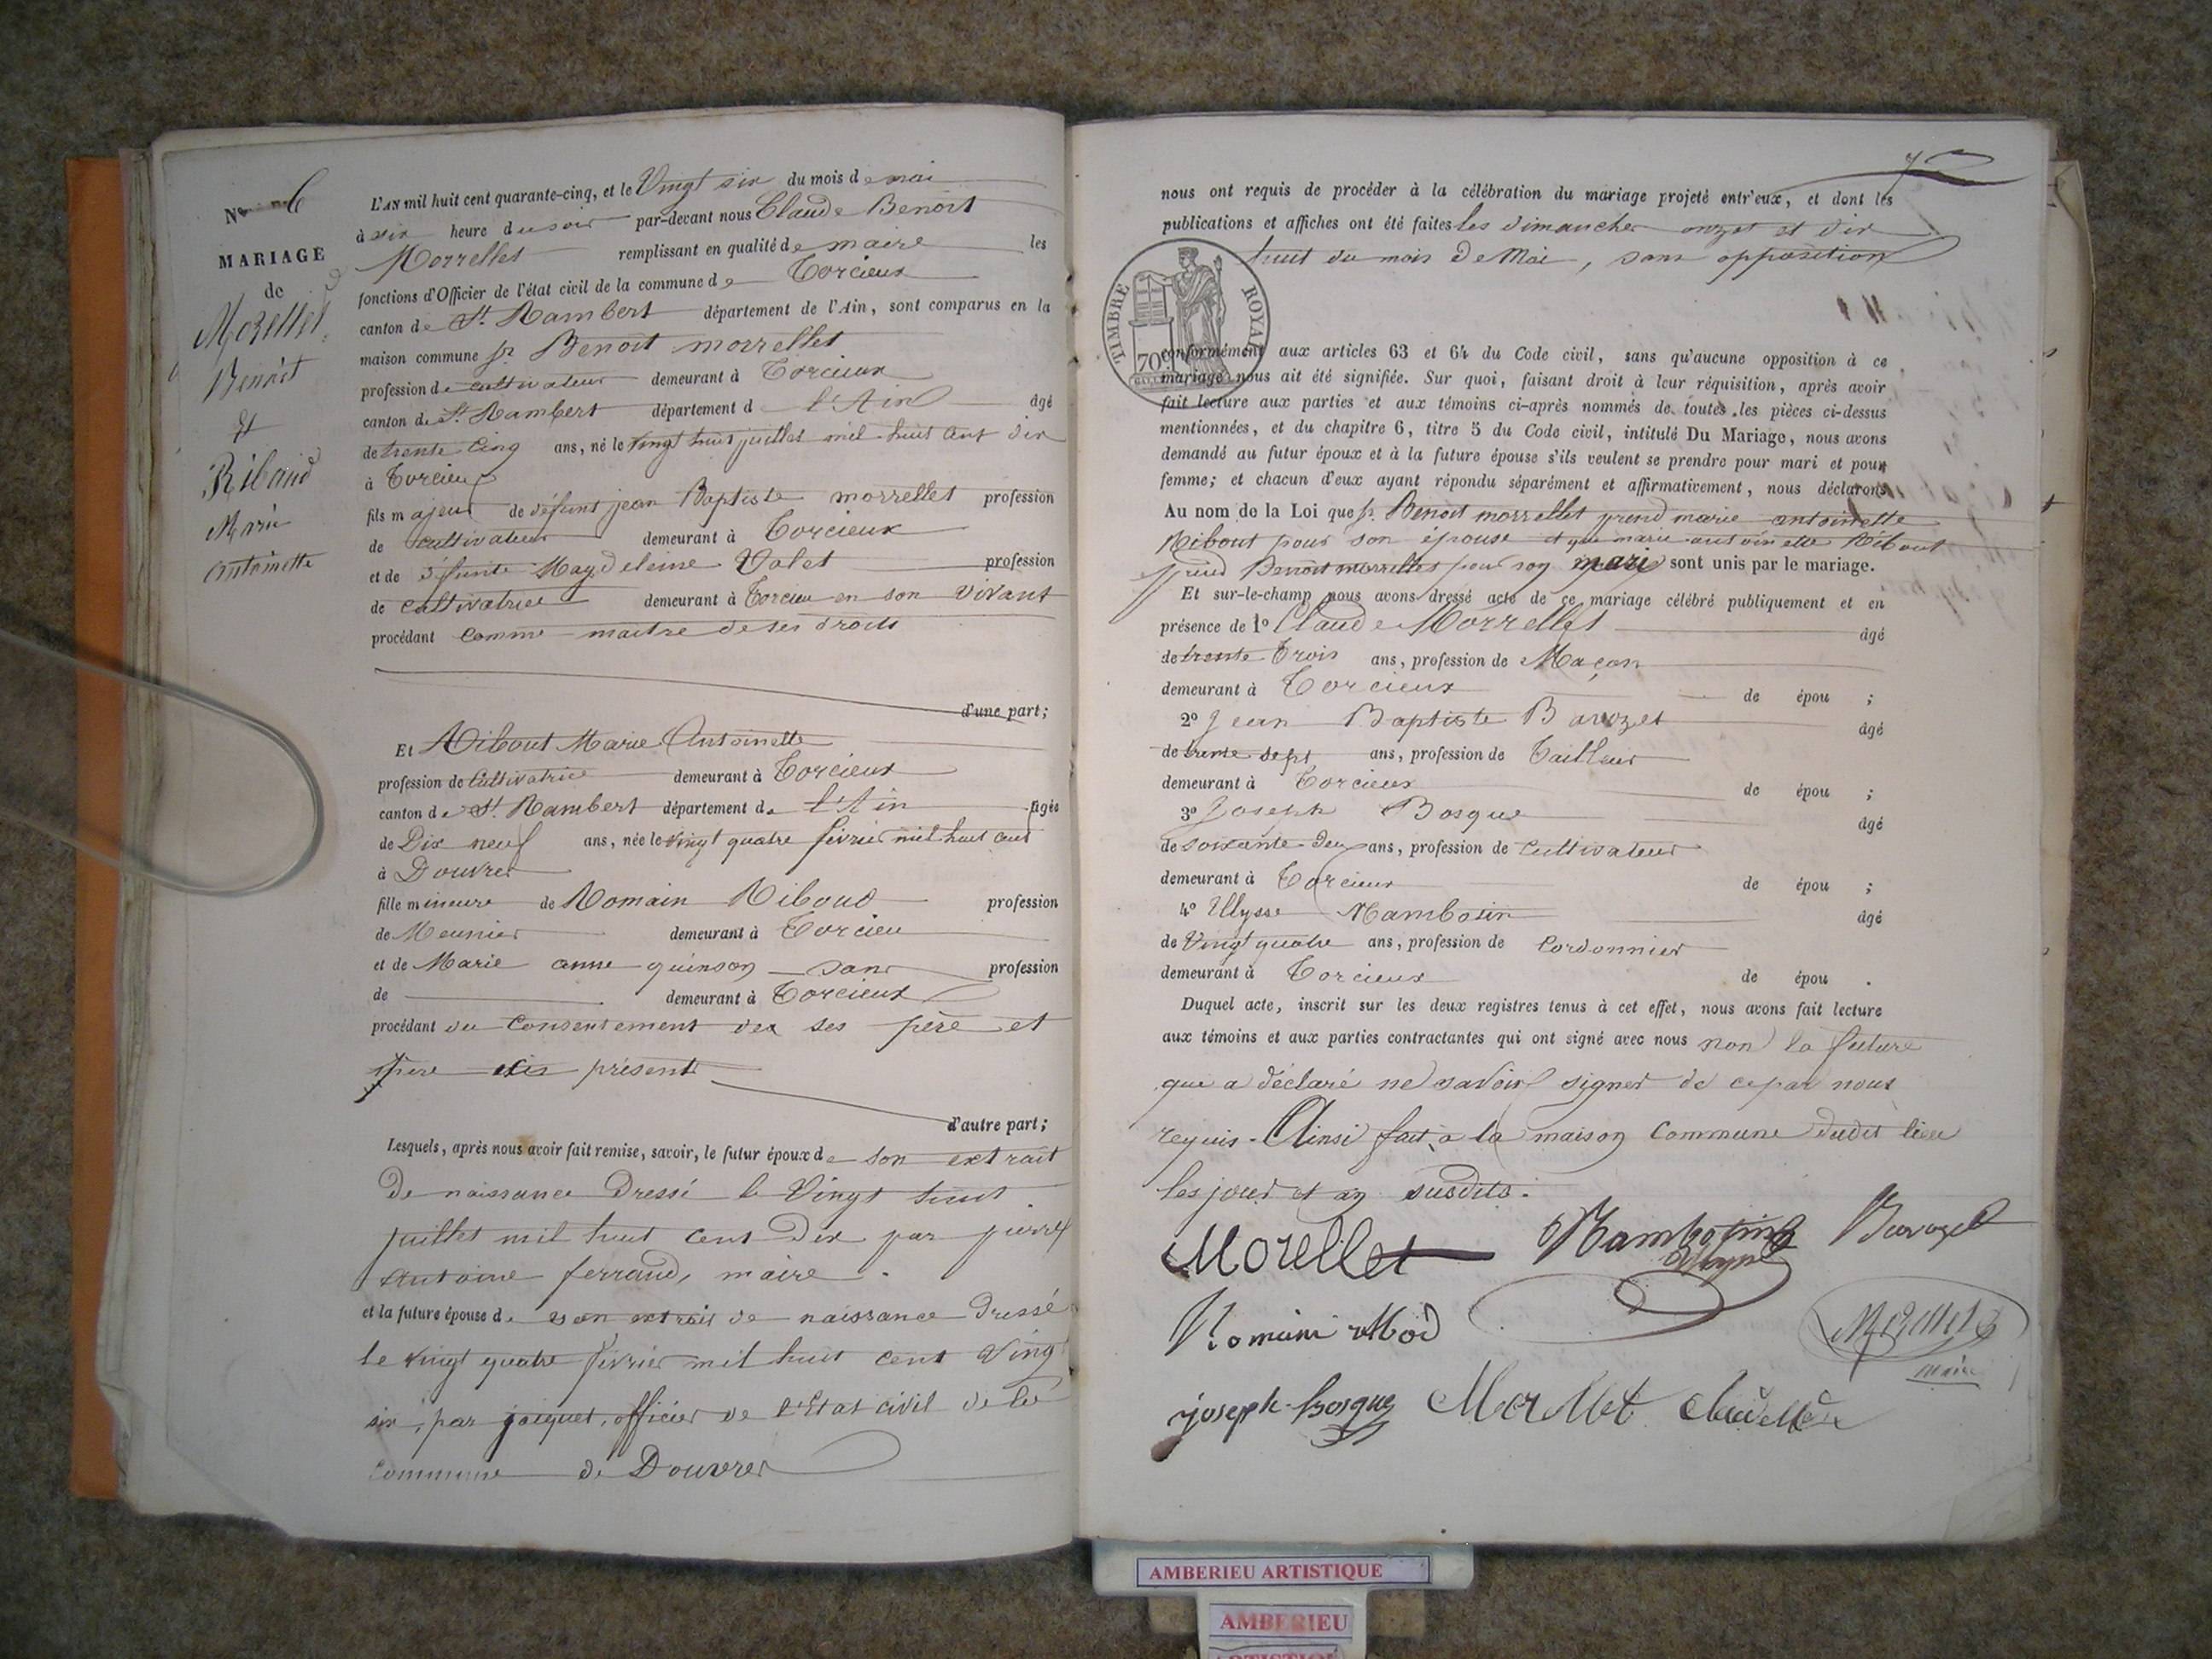 N° 6
MARIAGE
de
Morellet
Benoît
et
Ribaud
Marie
antoinette
L'AN mil huit cent quarante-cinq, et le Vingt six du mois de mai
à six heure du soir par-devant nous Claude Benoit
Morrellet remplissant en qualité de maire les
fonctions d'Officier de l'état civil de la commune de Torcieux
canton de St. Rambert département de l'Ain, sont comparus en la
maison commune sr Benoit morrellet
profession de cultivateur demeurant à Torcieux
canton de St. Rambert département de l'Ain âgé
de trente cinq ans, né le vingt huit juillet mil huit cent dix
à Torcieu
fils majeur de défunt jean Baptiste morrellet profession
de cultivateur demeurant à Torcieux
et de défunte Magdeleine Valet profession
de cultivatrice demeurant à Torcieu en son vivant
procédant comme maitre de ses droits
d'une part;
Et Ribout Marie Antoinette
profession de Cultivatrice demeurant à Torcieux
canton de St. Rambert département de l'Ain âgée
de Dix neuf ans, née le vingt quatre février mil huit cent
à Douvres
fille mineure de Romain Riboud profession
de Meunier demeurant à Torcieu
et de Marie anne quinson sans profession
de demeurant à Torcieux
procédant du consentement de ses père et
mère présents
d'autre part;
Lesquels, après nous avoir fait remise, savoir, le futur époux de son extrait
De naissance Dressé le Vingt huit
juillet mil huit cent Dix par pierre
Antoine ferrand, maire.
et la future épouse de son extrait de naissance Dressé
le vingt quatre février mil huit cent Ving
six, par jacquet, officier de l'Etat civil de la
commune de Douvres
7
nous ont requis de procéder à la célébration du mariage projeté entr'eux, et dont les
publications et affiches ont été faites les dimanches onzet et dix
huit du mois de Mai, sans opposition
TIMBRE ROYAL
70c
conformément aux articles 63 et 64 du Code civil, sans qu'aucune opposition à ce
mariage nous ait été signifiée. Sur quoi, faisant droit à leur réquisition, après avoir
fait lecture aux parties et aux témoins ci-après nommés de toutes les pièces ci-dessus
mentionnées, et du chapitre 6, titre 5 du Code civil, intitulé Du Mariage, nous avons
demandé au futur époux et à la future épouse s'ils veulent se prendre pour mari et pour
femme; et chacun d'eux ayant répondu séparément et affirmativement, nous déclarons
Au nom de la Loi que sr. Benoit morrellet prend marie antoinette
Ribout pour son épouse et que marie antoinette Ribout
prend Benoit morrellet pour son mari sont unis par le mariage.
Et sur-le-champ nous avons dressé acte de ce mariage célébré publiquement et en
présence de 1° Claude Morrellet âgé
de trente Trois ans, profession de Maçon
demeurant à Torcieux de épou ;
2° Jean Baptiste Barozet âgé
de trente sept ans, profession de Tailleur
demeurant à Torcieux de épou ;
3° Joseph Bosque âgé
de soixante deux ans, profession de Cultivateur
demeurant à Torcieux de épou ;
4° Ullysse Rambotin âgé
de Vingt quatre ans, profession de Cordonnier
demeurant à Torcieux de épou .
Duquel acte, inscrit sur les deux registres tenus à cet effet, nous avons fait lecture
aux témoins et aux parties contractantes qui ont signé avec nous non la future
que a déclaré ne savoir signer de ce par nous
requis. Ainsi fait à la maison Commune dudit lieu
les jour et an susdits.
Morellet Rambotin Barozet
Romain
Morellet
maire
joseph bosque Morellet Claude
AMBERIEU ARTISTIQUE
AMBERIEU
ARTISTIQUE